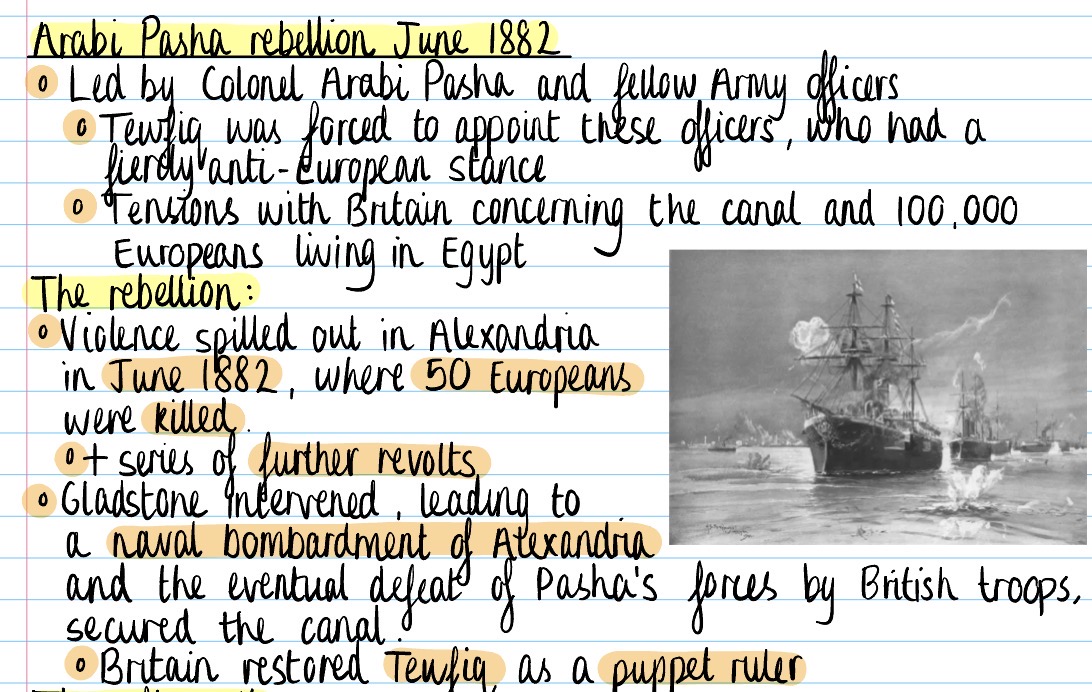 Arabi Pasha rebellion June 1882
Led by Colonel Arabi Pasha and fellow Army officers
Tewfiq was forced to appoint these officers, who had a
fiercly anti-European stance
Tensions with Britain concerning the canal and 100,000
Europeans living in Egypt
The rebellion:
Violence spilled out in Alexandria
in June 1882, where 50 Europeans
were killed.
+ series of further revolts
Gladstone intervened, leading to
a naval bombardment of Alexandria
and the eventual defeat of Pasha's forces by British troops,
secured the canal.
Britain restored Tewfiq as a puppet ruler